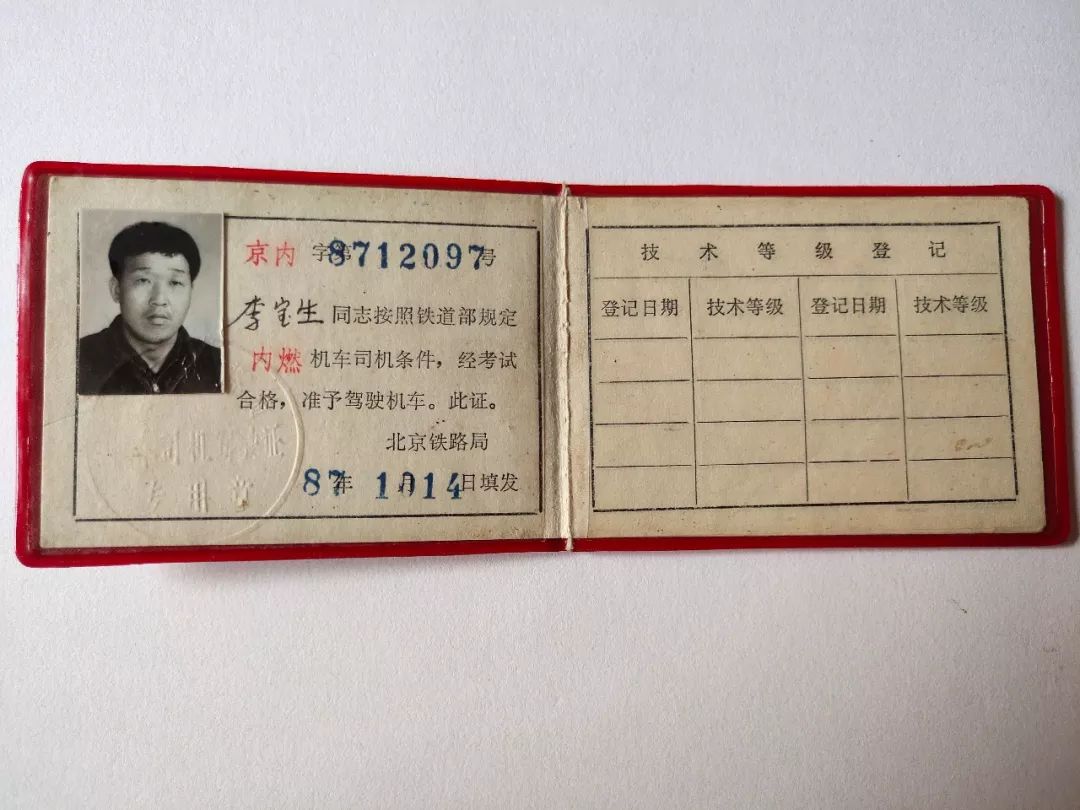 京内 字第8712097号
李宝生 同志按照铁道部规定
内燃 机车司机条件，经考试
合格，准予驾驶机车。此证。
北京铁路局
87年 10月14日填发
专用章
技术等级登记
登记日期 技术等级 登记日期 技术等级